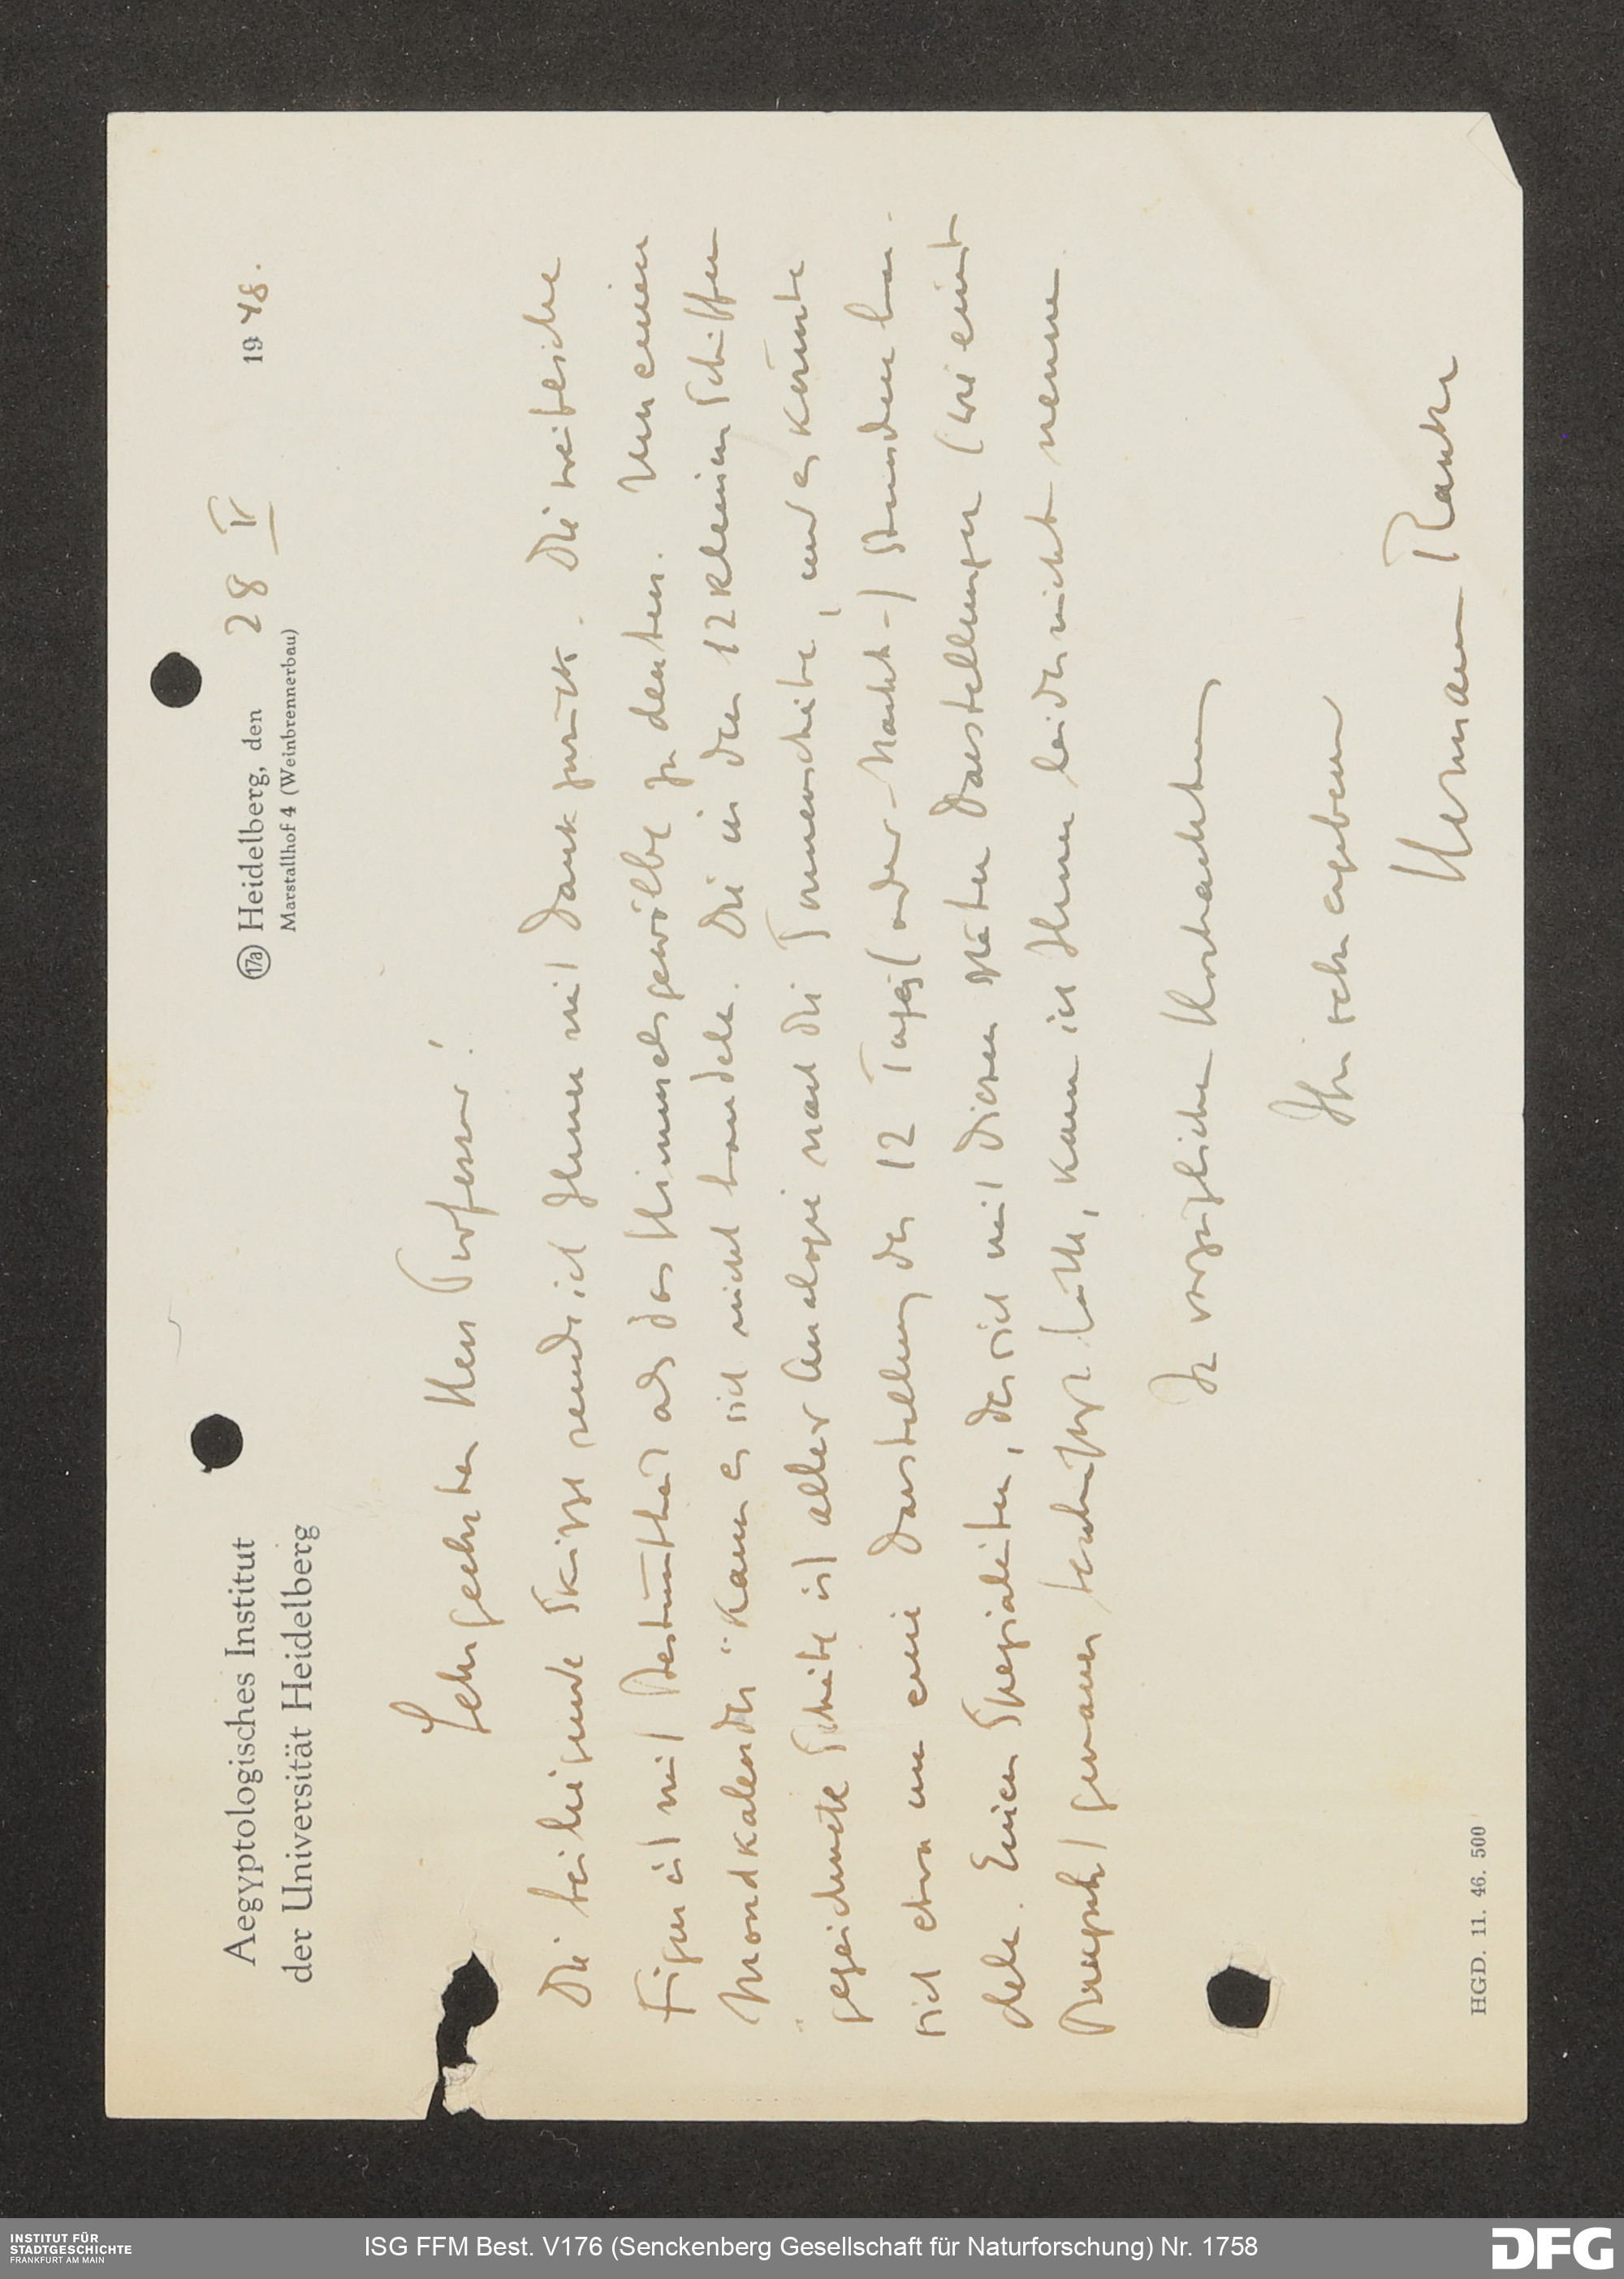 Aegyptologisches Institut
der Universität Heidelberg
17a Heidelberg, den 28 IV 1948.
Marstallhof 4 (Weinbrennerbau)
Sehr geehrter Herr Professor!
Die beiliegende Skizze sende ich Ihnen mit Dank zurück. Die weibliche
Figur ist mit Bestimmtheit als das Himmelsgewölbe zu deuten. Um einen
"Mondkalender" kann es sich nicht handeln. Die in den 12 kleinen Schiffen
gezeichnete Scheibe ist aller Analogie nach die Sonnenscheibe, und es könnte
sich etwa um eine Darstellung der 12 Tages (oder-Nacht-) Stunden han-
deln. Einen Spezialisten, der sich mit diesen späten Darstellungen (wie einst
Brugsch) genauer beschäftigt hätte, kann ich Ihnen leider nicht nennen.
In vorzüglicher Hochachtung
Ihr sehr ergebener
Hermann Ranke
HGD. 11. 46. 500
INSTITUT FÜR
STADTGESCHICHTE
FRANKFURT AM MAIN
ISG FFM Best. V176 (Senckenberg Gesellschaft für Naturforschung) Nr. 1758
DFG